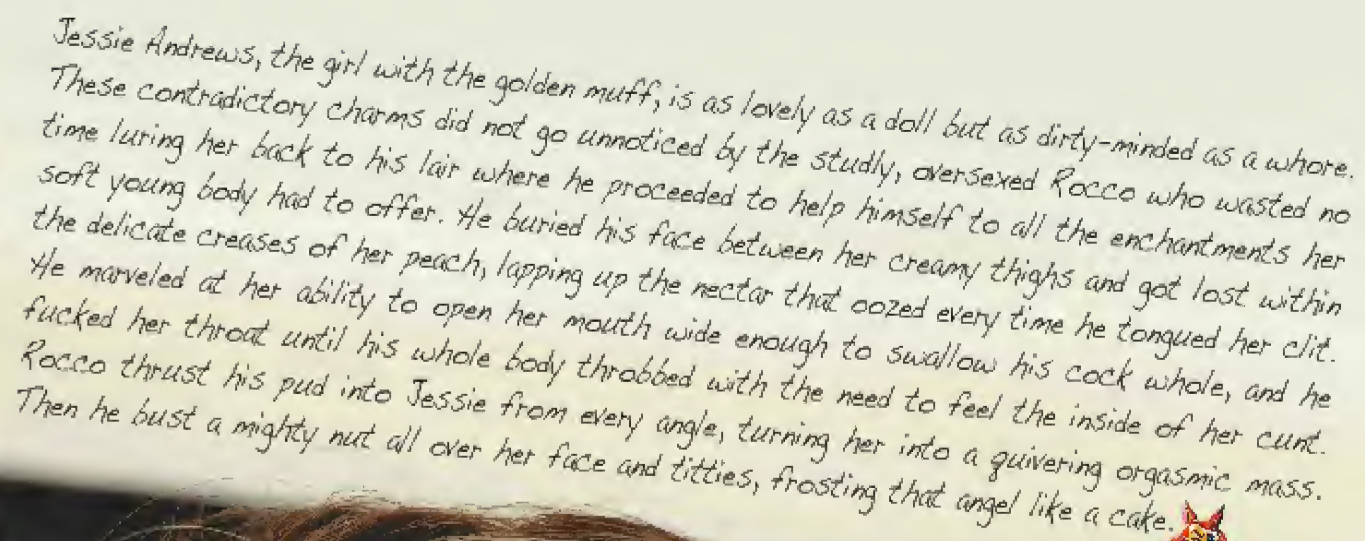 Jessie Andrews, the girl with the golden muff, is as lovely as a doll but as dirty-minded as a whore.
These contradictory charms did not go unnoticed by the studly, oversexed Rocco who wasted no
time luring her back to his lair where he proceeded to help himself to all the enchantments her
soft young body had to offer. He buried his face between her creamy thighs and got lost within
the delicate creases of her peach, lapping up the nectar that oozed every time he tongued her clit.
He marveled at her ability to open her mouth wide enough to swallow his cock whole, and he
fucked her throat until his whole body throbbed with the need to feel the inside of her cunt.
Rocco thrust his pud into Jessie from every angle, turning her into a quivering orgasmic mass.
Then he bust a mighty nut all over her face and titties, frosting that angel like a cake.